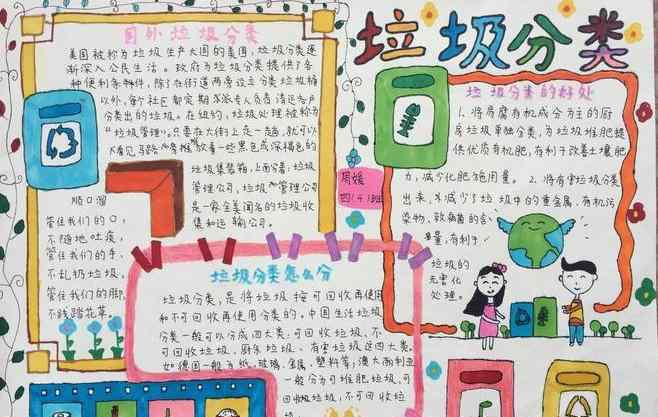 垃圾分类
国外垃圾分类
美国被称为垃圾生产大国的美国,垃圾分类逐
渐深入公民生活。政府为垃圾分类提供了各
种便利条件,除了在街道两旁设立分类垃圾桶
以外,每个社区都定期派专人负责清运各户
分类出的垃圾。在纽约,垃圾处理被称为
“垃圾管理”。只要在大街上是一与,就可以
看见马路旁停放着一些黑色或深褐色的
垃圾集装箱,上面分着:垃圾
管理公司,垃圾管理公司
是一家全美闻名的垃圾收
集和运输公司。
顺口溜
管住我们的口,
不随地吐痰,
管住我们的手,
不乱扔垃圾,
管住我们的脚,
不践踏花草。
垃圾分类的好处
1.将易腐有机成分为主的厨
房垃圾单独分类,为垃圾堆肥提
供优质有机肥,有利于改善土壤肥
力,减少化肥施用量。2.将有害垃圾分类
出来,减少了垃圾中的重金属、有机污
染物、致病菌的含
量,有利于
垃圾的
无害化
处理。
周媛
四(4)班
垃圾分类怎么分
垃圾分类,是将垃圾按可回收再使用
和不可回收再使用分类的。中国生活垃圾
分类一般可以分成四大类:可回收垃圾、不
可回收垃圾、厨余垃圾、有害垃圾这四大类。
如德国一般为纸、玻璃、金属、塑料等;澳大利亚
一般分为可堆肥垃圾,可
回收垃圾,不可回收垃